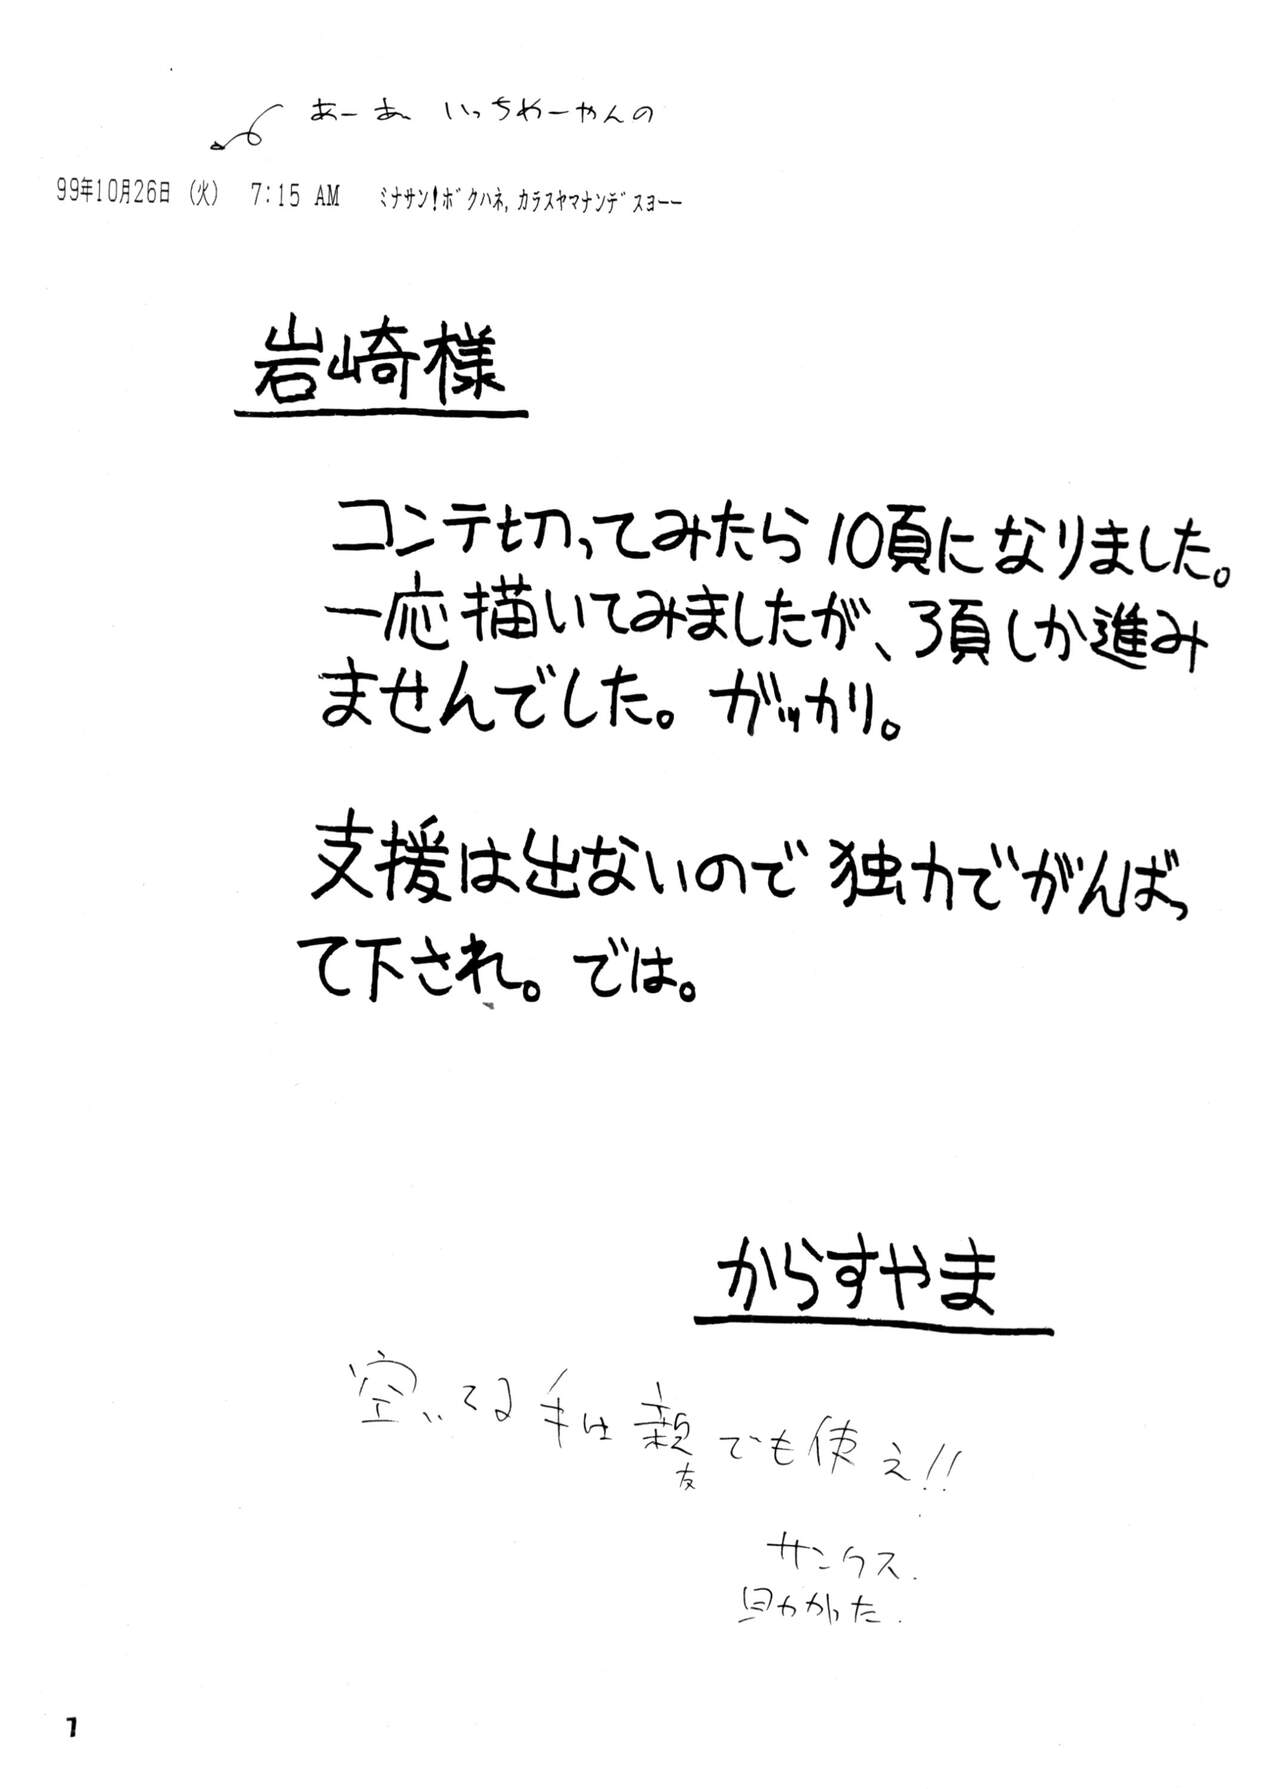 あーあ いっちゃーやんの
99年10月26日 (火) 7:15 AM ﾐﾅｻﾝ!ﾎﾞｸﾊﾈ,ｶﾗｽﾔﾏﾅﾝﾃﾞｽﾖｰｰ
岩崎様
コンテ切ってみたら10頁になりました。
一応描いてみましたが、3頁しか進み
ませんでした。ガッカリ。
支援は出ないので独力でがんばっ
て下され。では。
からすやま
空いてる手は親でも使え!!
友
サンクス.
助かった.
1